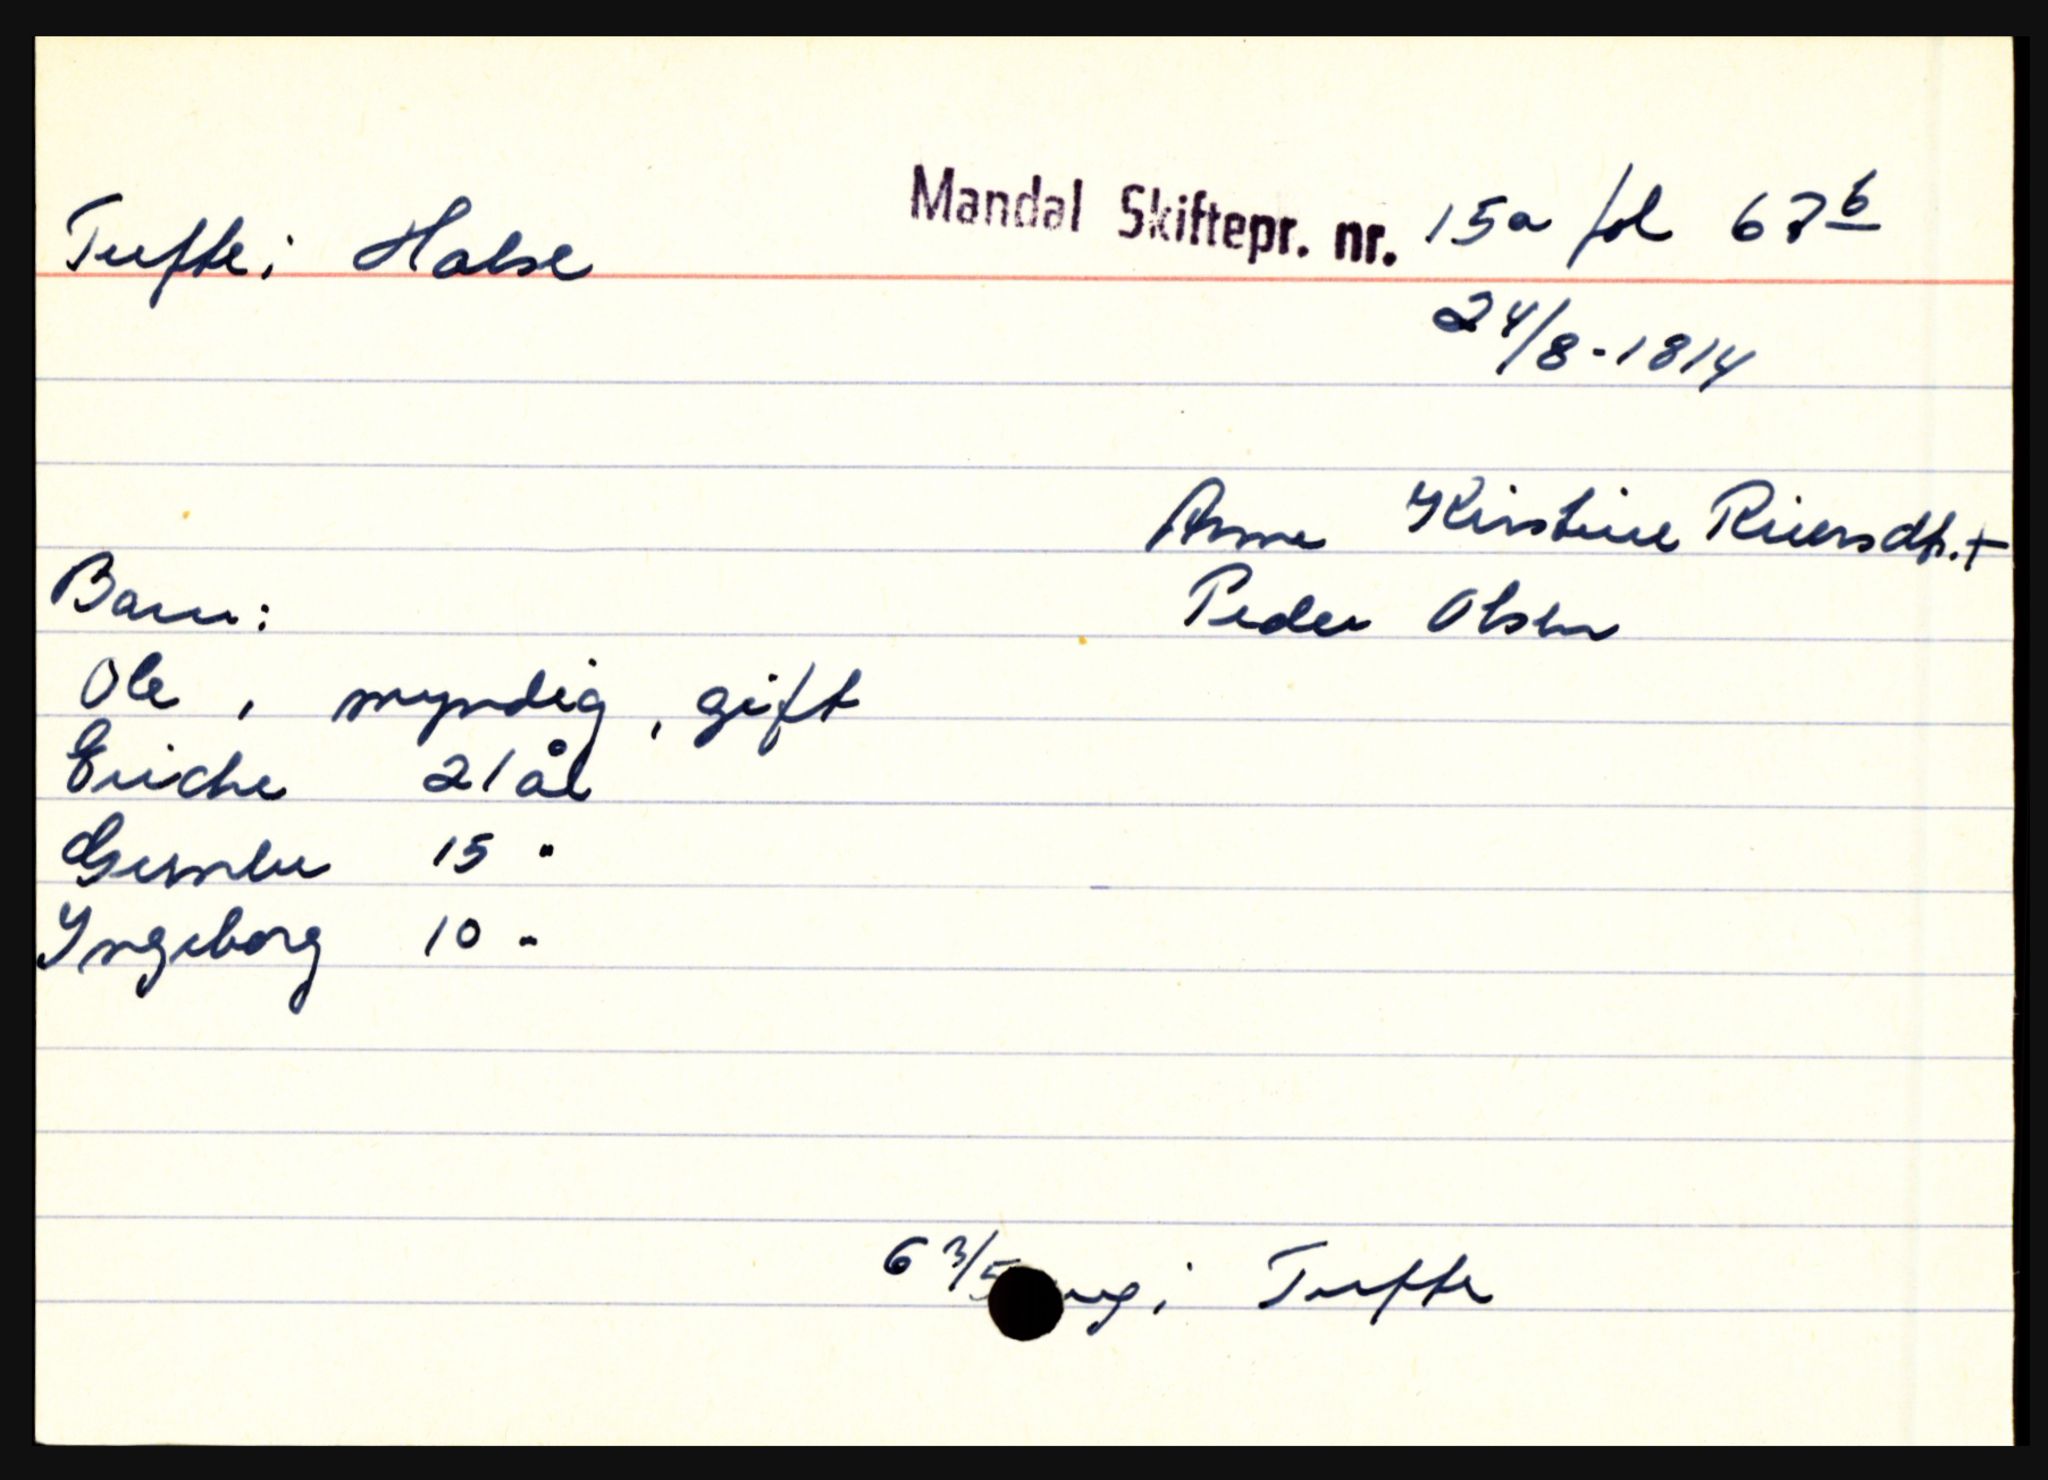 Tufte i Halse Mandal Skiftepr. nr. 15a fol 67b
24/8-1814
Anne Kirstine Reiersdt. +
Barn:
Peder Olsen
Ole, myndig, gift
Eriche 21 år
Gumle 15 "
Ingeborg 10 "
6 3/5 i Tufte